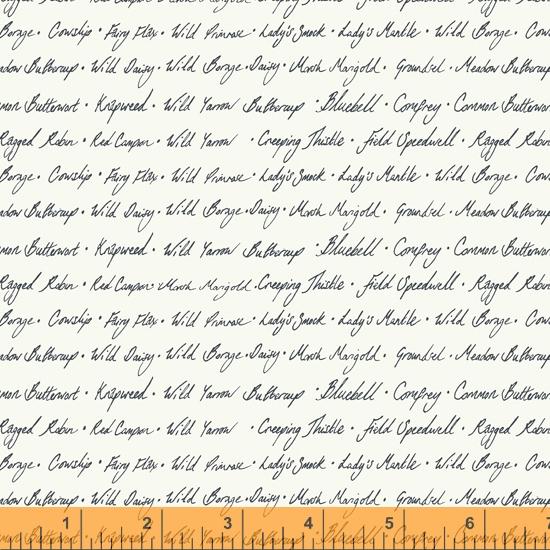 Borage · Cowslip · Fairy Flax · Wild Primrose · Lady's Smock · Lady's Mantle · Wild Borage · Cows
adow Buttercup · Wild Daisy · Wild Borage · Daisy · Marsh Marigold · Groundsel · Meadow Buttercup
mon Butterwort · Knapweed · Wild Yarrow Buttercup · Bluebell · Comfrey · Common Butterwor
Ragged Robin · Red Campion · Wild Yarrow · Creeping Thistle · Field Speedwell · Ragged Robin
Borage · Cowslip · Fairy Flax · Wild Primrose · Lady's Smock · Lady's Mantle · Wild Borage · Cows
adow Buttercup · Wild Daisy · Wild Borage · Daisy · Marsh Marigold · Groundsel · Meadow Buttercup
mon Butterwort · Knapweed · Wild Yarrow Buttercup · Bluebell · Comfrey · Common Butterwor
Ragged Robin · Red Campion · Marsh Marigold · Creeping Thistle · Field Speedwell · Ragged Robin
Borage · Cowslip · Fairy Flax · Wild Primrose · Lady's Smock · Lady's Mantle · Wild Borage · Cows
adow Buttercup · Wild Daisy · Wild Borage · Daisy · Marsh Marigold · Groundsel · Meadow Buttercup
mon Butterwort · Knapweed · Wild Yarrow Buttercup · Bluebell · Comfrey · Common Butterwor
Ragged Robin · Red Campion · Wild Yarrow · Creeping Thistle · Field Speedwell · Ragged Robin
Borage · Cowslip · Fairy Flax · Wild Primrose · Lady's Smock · Lady's Mantle · Wild Borage · Cows
adow Buttercup · Wild Daisy · Wild Borage · Daisy · Marsh Marigold · Groundsel · Meadow Buttercup
1 2 3 4 5 6 7